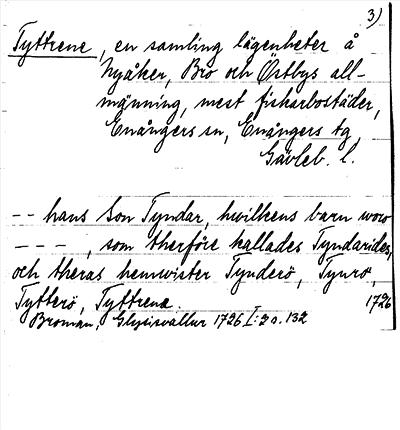 3)
Tyttrene, en samling lägenheter å
Nyåker, Bro och Östbys all-
männing, mest fiskarbostäder,
Enångers sn, Enångers tg,
Gävleb. l.
-- hans Son Tyndar, hwilkens barn woro
---, som therföre kallades Tyndarides,
och theras hemwister Tynderö, Tynrö,
Tytterö, Tyttrena. 1726
Broman, Glysisvallur 1726 I: 2 s. 132